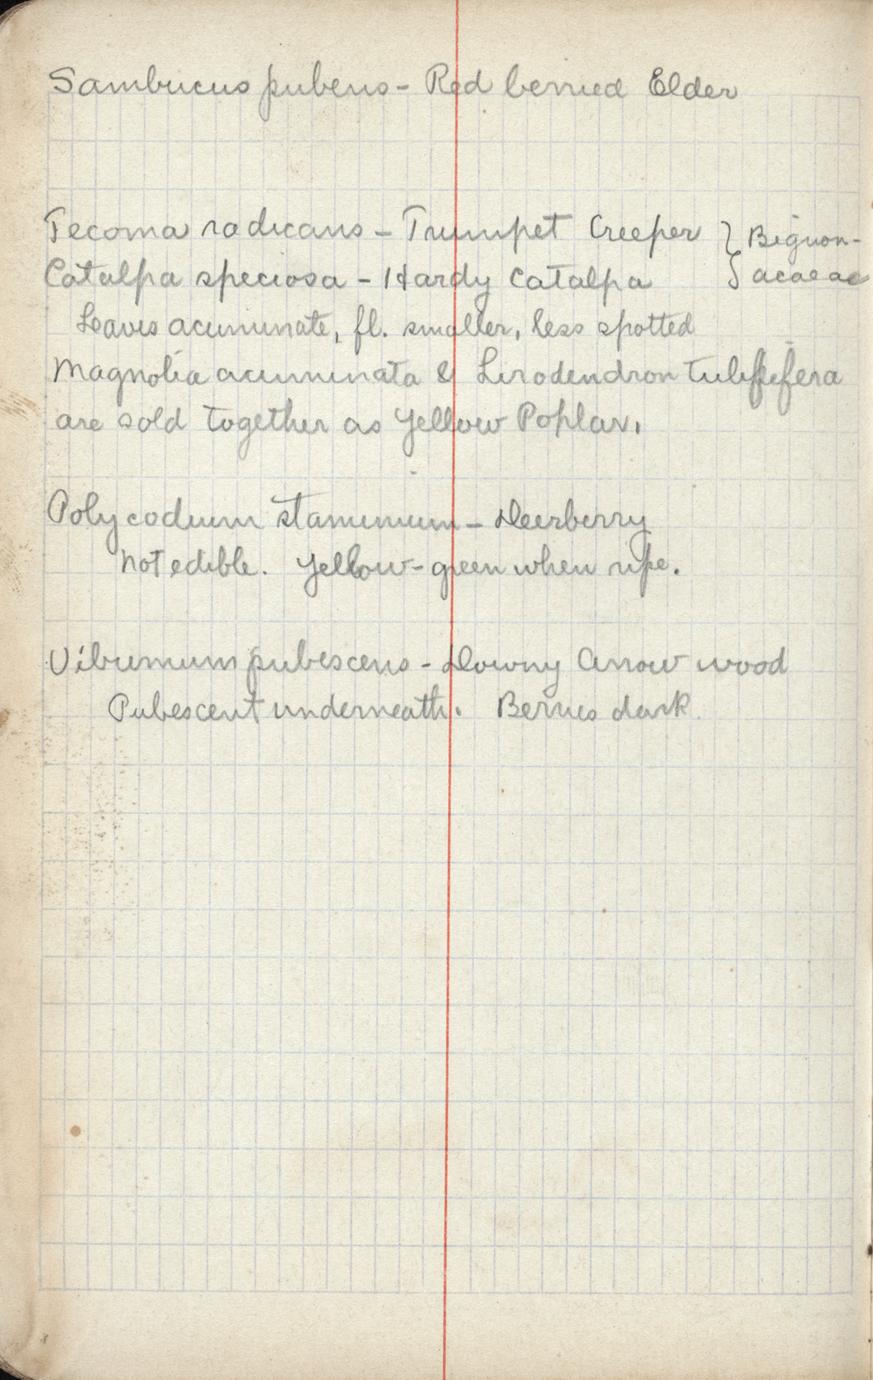 Sambucus pubens - Red berried Elder
Tecoma radicans - Trumpet Creeper } Bignon-
Catalpa speciosa - Hardy Catalpa } acaeae
Leaves acuminate, fl. smaller, less spotted
Magnolia acuminata & Lirodendron tulipifera
are sold together as Yellow Poplar.
Polycodium stamineum - Deerberry
Not edible. Yellow-green when ripe.
Viburnum pubescens - Downy Arrow wood
Pubescent underneath. Berries dark